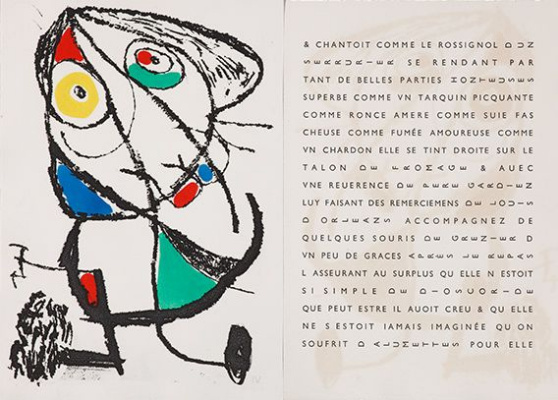 & CHANTOIT COMME LE ROSSIGNOL D UN
SERRURIER SE RENDANT PAR
TANT DE BELLES PARTIES HONTEUSES
SUPERBE COMME VN TARQUIN PICQUANTE
COMME RONCE AMERE COMME SUIE FAS
CHEUSE COMME FUMÉE AMOUREUSE COMME
VN CHARDON ELLE SE TINT DROITE SUR LE
TALON DE FROMAGE & AUEC
VNE REUERENCE DE PERE GARDIEN
LUY FAISANT DES REMERCIEMENS DE LOUIS
D ORLEANS ACCOMPAGNEZ DE
QUELQUES SOURIS DE GRENIER & D
VN PEU DE GRACES APRES LE REPAS
L ASSEURANT AU SURPLUS QU ELLE N ESTOIT
SI SIMPLE DE DIOSCORIDE
QUE PEUT ESTRE IL AUOIT CREU & QU ELLE
NE S ESTOIT IAMAIS IMAGINÉE QU ON
SOUFRIT D ALUMETTES POUR ELLE